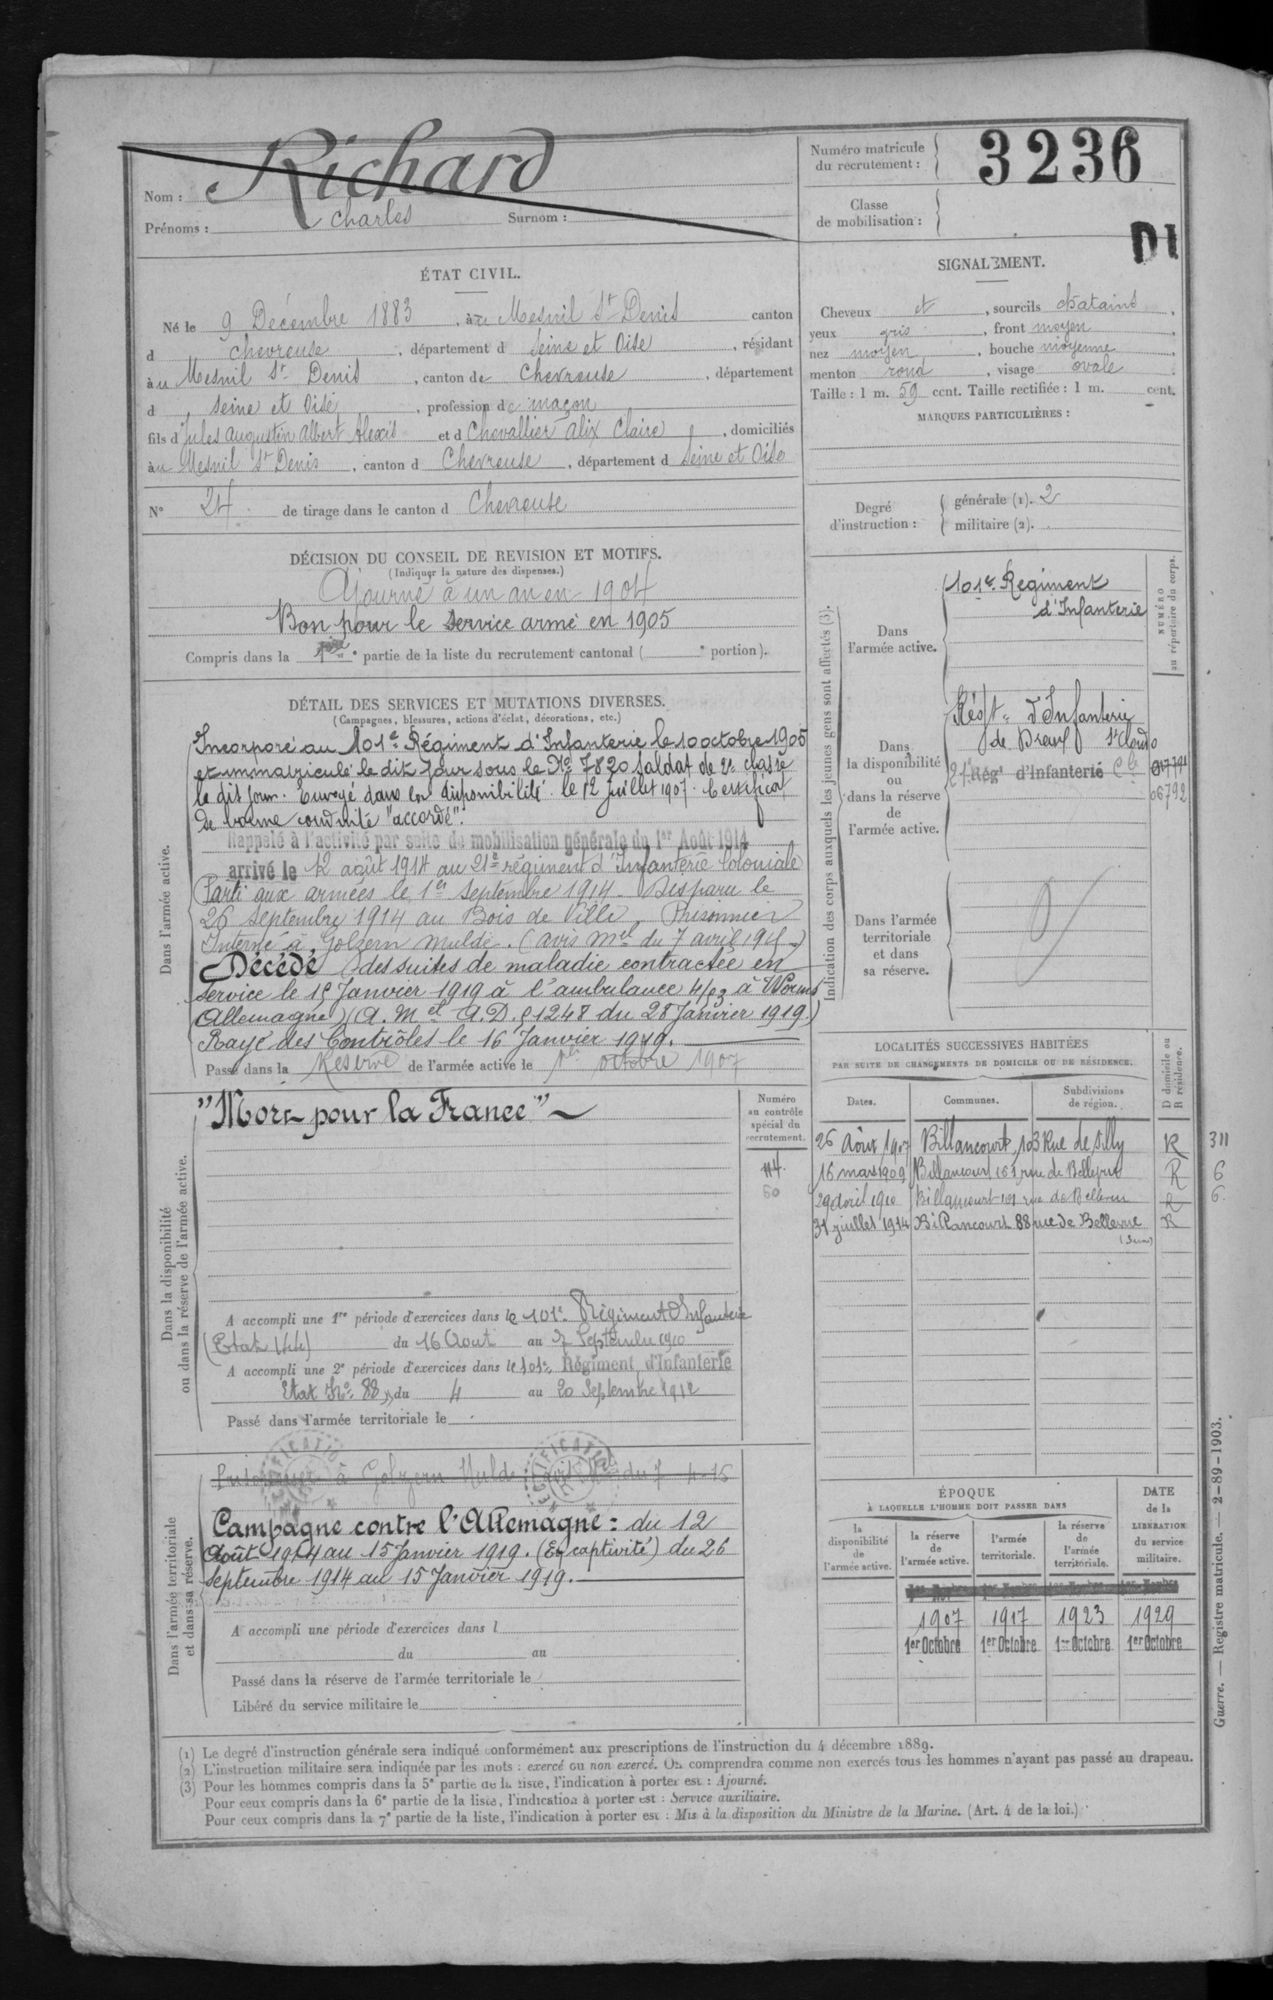 Nom : Richard
Prénoms : Charles Surnom :
Numéro matricule du recrutement : 3236
Classe de mobilisation :
D1
ÉTAT CIVIL.
Né le 9 Décembre 1883, à u Mesnil St Denis canton
d Chevreuse, département d Seine et Oise, résidant
à u Mesnil St Denis, canton de Chevreuse, département
d Seine et Oise, profession de maçon
fils d Jules Augustin Albert Alexis et d Chevallier Alix Claire, domiciliés
à u Mesnil St Denis, canton d Chevreuse, département d Seine et Oise
N° 24 de tirage dans le canton d Chevreuse
SIGNALEMENT.
Cheveux et, sourcils chatains,
yeux gris, front moyen,
nez moyen, bouche moyenne,
menton rond, visage ovale.
Taille : 1 m. 59 cent. Taille rectifiée : 1 m. cent.
MARQUES PARTICULIÈRES :
Degré d'instruction : générale (1). 2
militaire (2).
DÉCISION DU CONSEIL DE REVISION ET MOTIFS.
(Indiquer la nature des dispenses.)
Ajourné à un an en 1904
Bon pour le service armé en 1905
Compris dans la e partie de la liste du recrutement cantonal ( e portion).
DÉTAIL DES SERVICES ET MUTATIONS DIVERSES.
(Campagnes, blessures, actions d'éclat, décorations, etc.)
Dans l'armée active.
Incorporé au 101e Régiment d'Infanterie le 10 octobre 1905
et immatriculé le dit jour sous le No 7820 soldat de 2e classe
le dit jour. Envoyé dans la disponibilité le 12 juillet 1907. Certificat
de bonne conduite "accordé".
Rappelé à l'activité par suite de mobilisation générale du 1er Août 1914
arrivé le 12 août 1914 au 21e régiment d'Infanterie Coloniale
Parti aux armées le 1er septembre 1914 - Disparu le
26 septembre 1914 au Bois de Ville. Prisonnier
Interné à Golzern Mulde. (avis mel du 7 avril 1915)
Décédé des suites de maladie contractée en
service le 15 Janvier 1919 à l'ambulance 4/63 à Worms
Allemagne) (A. Mel A.D. 51248 du 28 Janvier 1919.)
Rayé des Contrôles le 16 Janvier 1919.
Passé dans la Réserve de l'armée active le 1er octobre 1907
Indication des corps auxquels les jeunes gens sont affectés (3).
NUMÉRO au répertoire du corps.
Dans l'armée active. 101e Régiment
d'Infanterie
Dans la disponibilité ou dans la réserve de l'armée active.
Régt d'Infanterie
de Dreux St Cloud
21e Régt d'Infanterie Cle
06792
Dans l'armée territoriale et dans sa réserve.
LOCALITÉS SUCCESSIVES HABITÉES
PAR SUITE DE CHANGEMENTS DE DOMICILE OU DE RÉSIDENCE.
Dates. Communes. Subdivisions de région. D domicile ou R résidence.
26 Août 1907 Billancourt, 103 Rue de Silly R 311
16 mars 1909 Billancourt 101 rue de Bellevue R 6
29 avril 1910 Billancourt 101 rue de Bellevue R 6
31 juillet 1914 Billancourt 88 rue de Bellevue R
(Seine)
Dans la disponibilité ou dans la réserve de l'armée active.
"Mort pour la France"
Numéro au contrôle spécial du recrutement.
114
60
A accompli une 1re période d'exercices dans le 101e Régiment d'Infanterie
(Etat 144) du 16 Aout au 7 Septembre 1910
A accompli une 2e période d'exercices dans le 101e Régiment d'Infanterie
Etat No 88 du 4 au 20 Septembre 1912
Passé dans l'armée territoriale le
Dans l'armée territoriale et dans sa réserve.
Prisonnier à Golzern Mulde avis Mel du 7-4-15
Campagne contre l'Allemagne : du 12
Août 1914 au 15 Janvier 1919. (En captivité) du 26
septembre 1914 au 15 Janvier 1919.
A accompli une période d'exercices dans l
du au
Passé dans la réserve de l'armée territoriale le
Libéré du service militaire le
ÉPOQUE
À LAQUELLE L'HOMME DOIT PASSER DANS
DATE de la LIBÉRATION du service militaire.
la disponibilité de l'armée active. la réserve de l'armée active. l'armée territoriale. la réserve de l'armée territoriale.
1907 1917 1923 1929
1er Octobre 1er Octobre 1er Octobre 1er Octobre
Guerre. — Registre matricule. — 2-89-1903.
(1) Le degré d'instruction générale sera indiqué conformément aux prescriptions de l'instruction du 4 décembre 1889.
(2) L'instruction militaire sera indiquée par les mots : exercé ou non exercé. On comprendra comme non exercés tous les hommes n'ayant pas passé au drapeau.
(3) Pour les hommes compris dans la 5e partie de la liste, l'indication à porter est : Ajourné.
Pour ceux compris dans la 6e partie de la liste, l'indication à porter est : Service auxiliaire.
Pour ceux compris dans la 7e partie de la liste, l'indication à porter est : Mis à la disposition du Ministre de la Marine. (Art. 4 de la loi.)